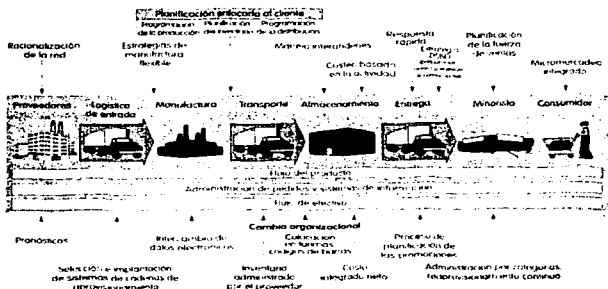 Planificación enfocada al cliente
Programación de la producción
Planificación del inventario
Programación de la distribución
Racionalización
de la red
Estrategias de
manufactura
flexible
Manejo interandenes
Costeo basado
en la actividad
Respuesta
rápida
Estrategia
Planificación
de la fuerza
de ventas
Micromercadeo
integrado
Proveedores
Logística
de entrada
Manufactura
Transporte
Almacenamiento
Entrega
Minorista
Consumidor
Flujo del producto
Administración de pedidos y sistemas de información
Flujo de efectivo
Cambio organizacional
Pronósticos
Intercambio de
datos electrónicos
Colocación
códigos de barras
Proceso de
planificación de
las promociones
Selección e implantación
de sistemas de cadenas de
aprovisionamiento
Inventario
administrado
por el proveedor
Costo
integrado neto
Administración por categorías,
reaprovisionamiento continuo